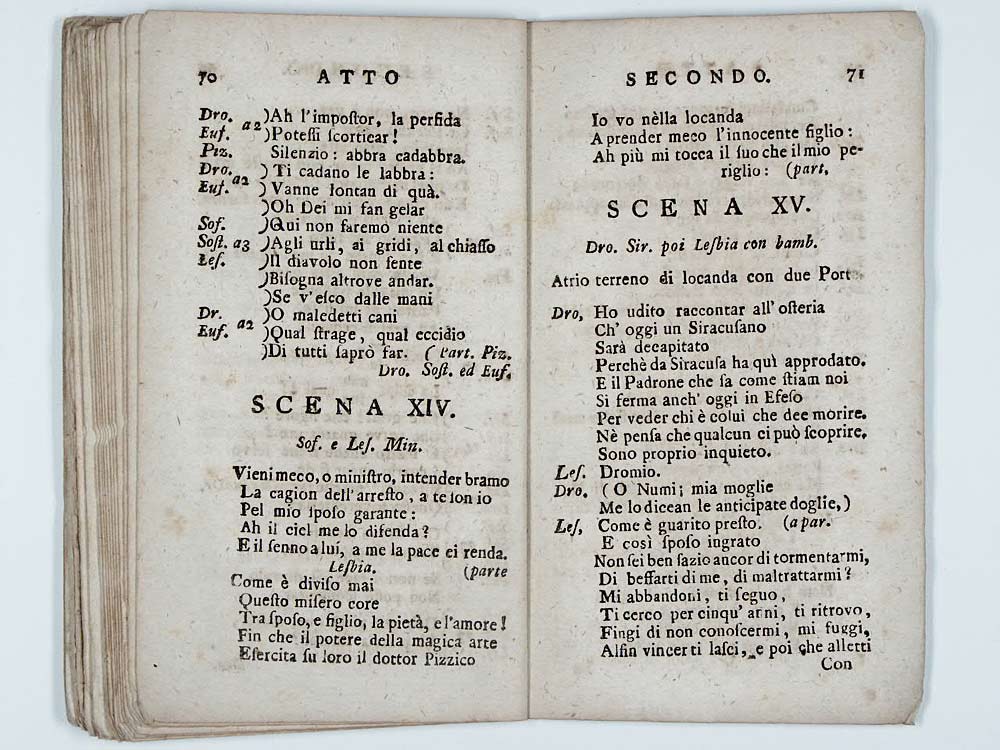 70 ATTO
Dro. )Ah l'impoſtor, la perfida
Euf. a2 )Poteſſi ſcorticar!
Piz. Silenzio: abbra cadabbra.
Dro. ) Ti cadano le labbra:
Euſ. a2 ) Vanne lontan di quà.
)Oh Dei mi fan gelar
Soſ. )Qui non faremo niente
Soſt. a3 )Agli urli, ai gridi, al chiaſſo
Leſ. )Il diavolo non ſente
)Biſogna altrove andar.
)Se v'eſco dalle mani
Dr. )O maledetti cani
Euf. a2 )Qual ſtrage, qual eccidio
)Di tutti ſaprò far. ( Part. Piz.
Dro. Soſt. ed Euſ.
SCENA XIV.
Soſ. e Leſ. Min.
Vieni meco, o miniſtro, intender bramo
La cagion dell'arreſto, a te ſon io
Pel mio ſpoſo garante:
Ah il ciel me lo difenda?
E il ſenno a lui, a me la pace ei renda.
Leſbia. (parte
Come è diviſo mai
Queſto miſero core
Tra ſpoſo, e figlio, la pietà, e l'amore!
Fin che il potere della magica arte
Eſercita ſu loro il dottor Pizzico
SECONDO. 71
Io vo nèlla locanda
A prender meco l'innocente figlio:
Ah più mi tocca il ſuo che il mio pe-
riglio: (part.
SCENA XV.
Dro. Sir. poi Leſbia con bamb.
Atrio terreno di locanda con due Port
Dro, Ho udito raccontar all'oſteria
Ch' oggi un Siracuſano
Sarà decapitato
Perchè da Siracuſa ha quì approdato.
E il Padrone che ſa come ſtiam noi
Si ferma anch' oggi in Efeſo
Per veder chi è colui che dee morire.
Nè penſa che qualcun ci può ſcoprire.
Sono proprio inquieto.
Leſ. Dromio.
Dro. ( O Numi; mia moglie
Me lo dicean le anticipate doglie,)
Leſ, Come è guarito preſto. (a par.
E così ſpoſo ingrato
Non ſei ben ſazio ancor di tormentarmi,
Di beffarti di me, di maltrattarmi?
Mi abbandoni, ti ſeguo,
Ti cerco per cinqu' anni, ti ritrovo,
Fingi di non conoſcermi, mi fuggi,
Alfin vincerti laſci, e poi che alletti
Con